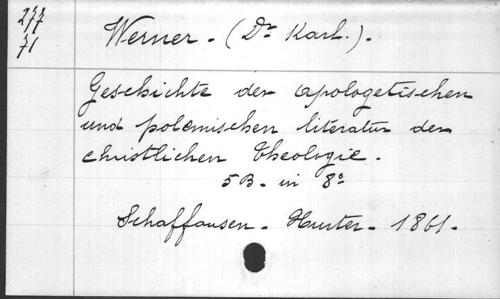 277
71
Werner. (Dr Karl.).
Geschichte der apologetischen
und polemischen literatur der
christlichen Theologie.
5 B. in 8°
Schaffausen. Hurter. 1861.